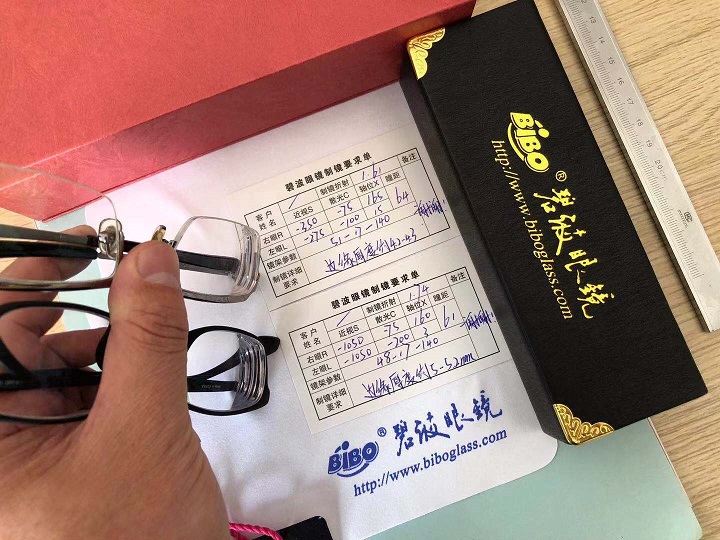 碧波眼镜制镜要求单
客户姓名
制镜折射 1.61
备注
近视S 散光C 轴位X 瞳距
右眼R -350 -75 165 64
左眼L -275 -100 15
镜架参数 51-17-140
制镜详细要求
碧波眼镜制镜要求单
客户姓名
制镜折射 1.74
备注
近视S 散光C 轴位X 瞳距
右眼R -1050 -75 160 61
左眼L -1050 -200 3
镜架参数 48-17-140
制镜详细要求
BiBO® 碧波眼镜
http://www.biboglass.com
BiBO® 碧波眼镜
http://www.biboglass.com
13
14
15
16
17
18
19
20